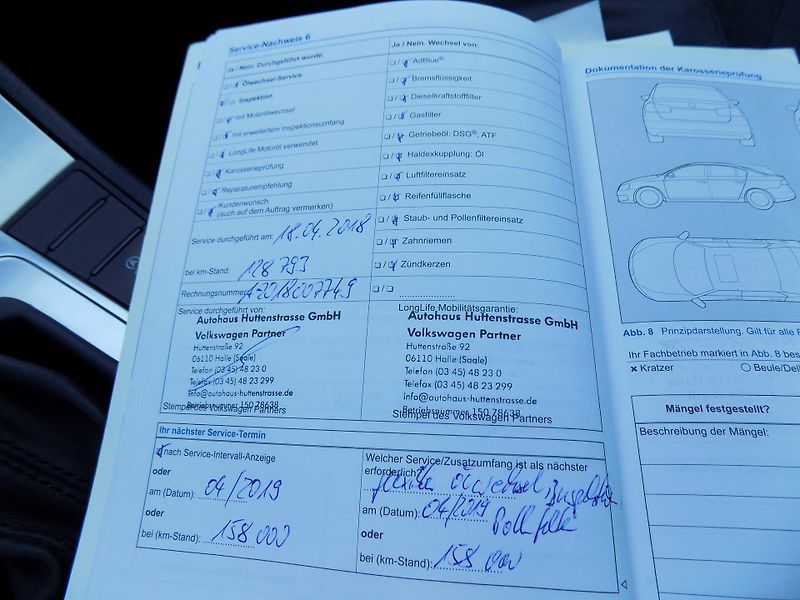 Service-Nachweis 6
Ja / Nein. Durchgeführt wurde:
Ölwechsel-Service
Inspektion
mit Motorölwechsel
mit erweitertem Inspektionsumfang
LongLife Motoröl verwendet
Karosserieprüfung
Reparaturempfehlung
Kundenwunsch
(auch auf dem Auftrag vermerken)
Service durchgeführt am: 18.04.2018
bei km-Stand: 128 793
Rechnungsnummer:
Service durchgeführt von:
Autohaus Huttenstrasse GmbH
Volkswagen Partner
Huttenstraße 92
06110 Halle (Saale)
Telefon (03 45) 48 23 0
Telefax (03 45) 48 23 299
info@autohaus-huttenstrasse.de
Betriebsnummer 150 78638
Stempel des Volkswagen Partners
Ja / Nein. Wechsel von:
AdBlue®
Bremsflüssigkeit
Dieselkraftstofffilter
Gasfilter
Getriebeöl: DSG®, ATF
Haldexkupplung: Öl
Luftfiltereinsatz
Reifenfüllflasche
Staub- und Pollenfiltereinsatz
Zahnriemen
Zündkerzen
LongLife Mobilitätsgarantie:
Autohaus Huttenstrasse GmbH
Volkswagen Partner
Huttenstraße 92
06110 Halle (Saale)
Telefon (03 45) 48 23 0
Telefax (03 45) 48 23 299
info@autohaus-huttenstrasse.de
Betriebsnummer 150 78638
Stempel des Volkswagen Partners
Ihr nächster Service-Termin
nach Service-Intervall-Anzeige
oder
am (Datum): 04/2019
oder
bei (km-Stand): 158 000
Welcher Service/Zusatzumfang ist als nächster
erforderlich?
Ölwechsel Inspektion
am (Datum): 04/2019
oder
bei (km-Stand): 158 000
Dokumentation der Karosserieprüfung
Abb. 8 Prinzipdarstellung. Gilt für alle
Ihr Fachbetrieb markiert in Abb. 8
× Kratzer ○ Beule/
Mängel festgestellt?
Beschreibung der Mängel: